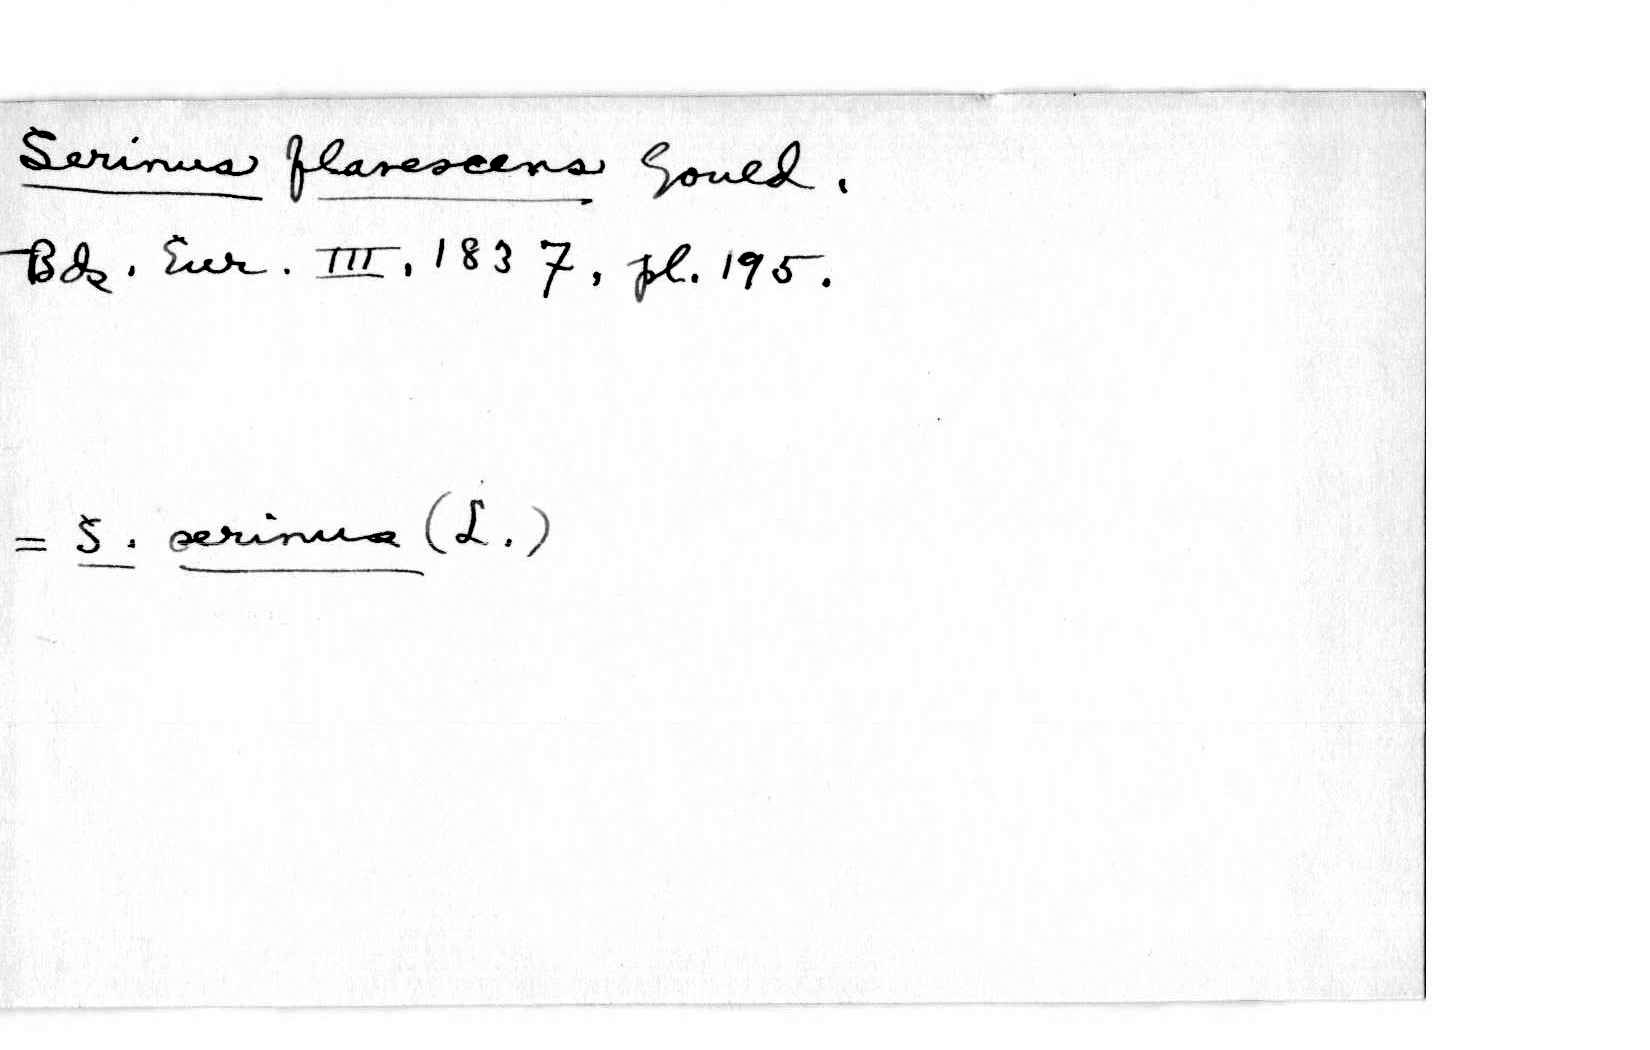 Serinus flavescens Gould.
Bds. Eur. III, 1837, pl. 195.
= S. serinus (L.)